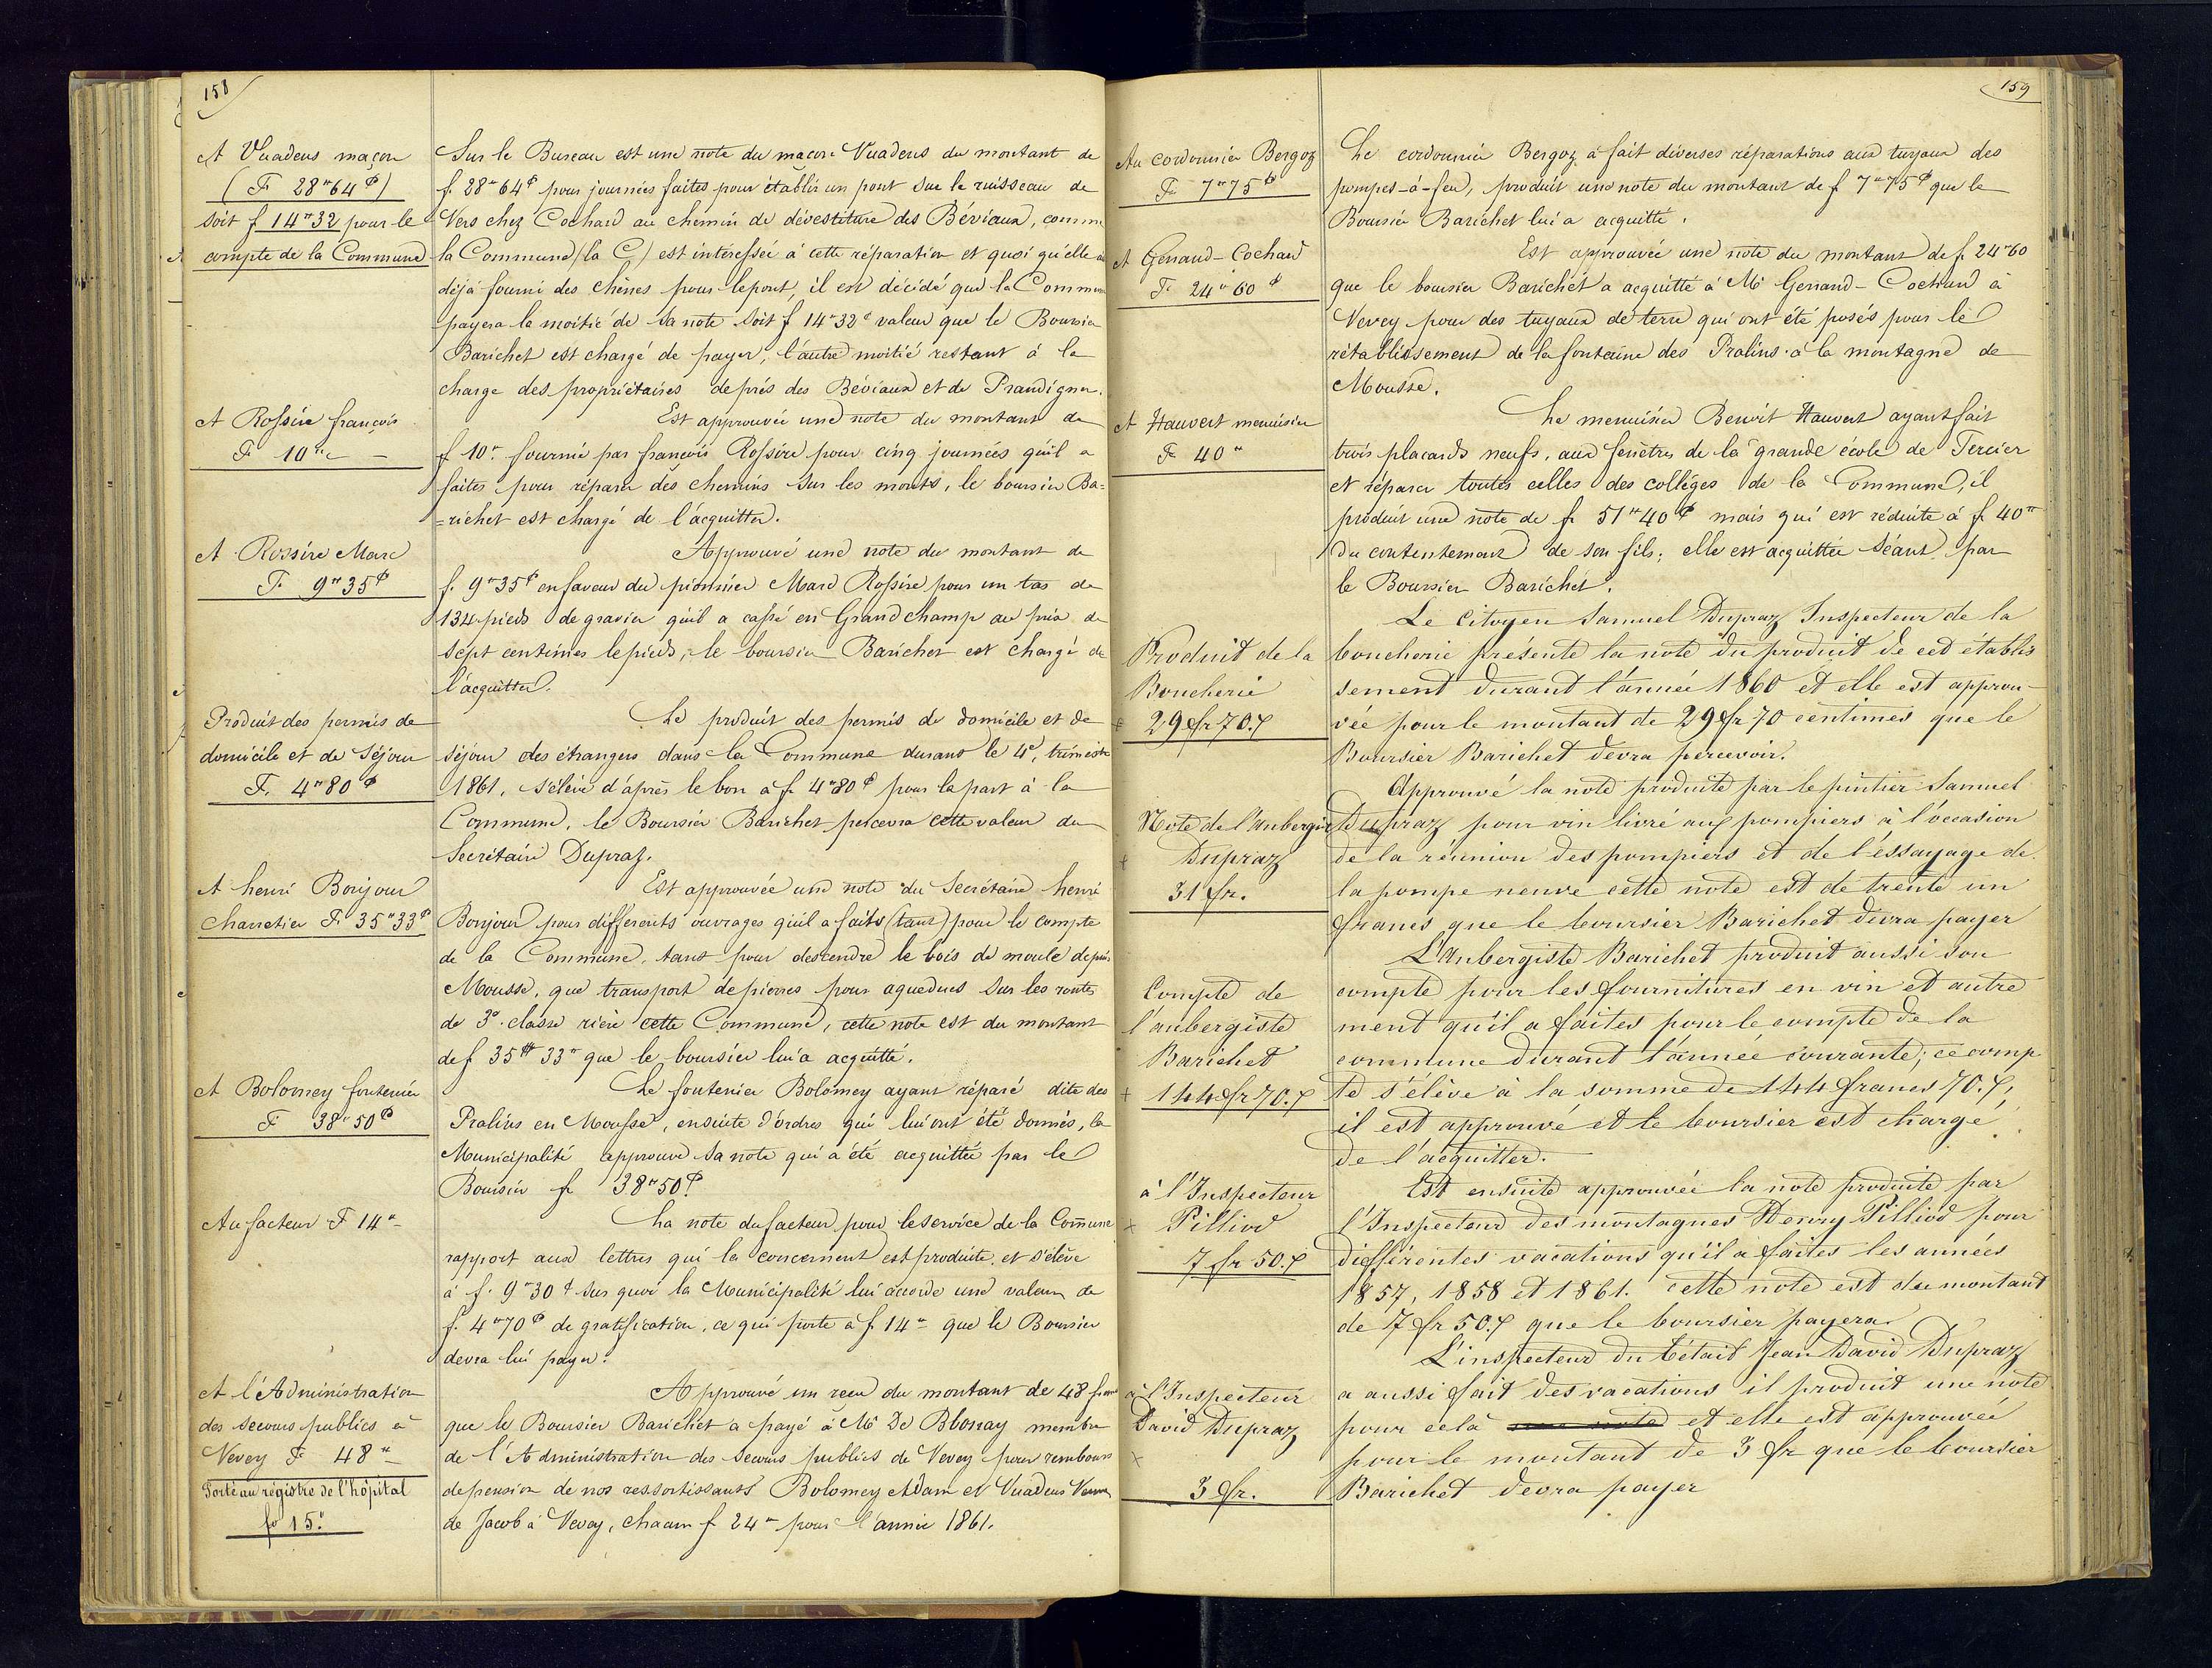 158
A Vuadens maçon
(F 28"64 ¢)
soit f 14"32 pour le
compte de la Commune
Sur le Bureau est une note du maçon Vuadens du montant de
f. 28"64 ¢ pour journées faites pour établir un pont sur le ruisseau de
Vers chez Cochard au chemin de dévestiture des Béviaux, comme
la Commune (la C) est intéressée à cette réparation et quoi qu'elle a
déjà fourni des chênes pour le pont, il est décidé que la Commune
payera la moitié de sa note soit f 14"32 ¢ valeur que le Boursier
Barichet est chargé de payer, l'autre moitié restant à la
charge des propriétaires de prés des Béviaux et de Prandigner.
A Rossire françois
F 10"
Est approuvée une note du montant de
f 10" fournie par françois Rossire pour cinq journées qu'il a
faites pour réparer des chemins sur les monts, le boursier Ba=
=richet est chargé de l'acquitter.
A Rossire Marc
F. 9"35 ¢
Approuvé une note du montant de
f. 9"35 ¢ en faveur du pionnier Marc Rossire pour un tas de
134 pieds de gravier qu'il a cassé en Grandchamp au prix de
sept centimes le pied, le boursier Barichet est chargé de
l'acquitter.
Produit des permis de
domicile et de séjour
F. 4"80 ¢
Le produit des permis de domicile et de
séjour des étrangers dans la Commune durant le 4e. trimestre
1861, s'élève d'après le bon à f 4"80 ¢ pour la part à la
Commune, le Boursier Barichet percevra cette valeur du
Secrétaire Dupraz.
A henri Bonjour
charretier F 35"33 ¢
Est approuvée une note du Secrétaire henri
Bonjour pour différents ouvrages qu'il a faits (tant) pour le compte
de la Commune, tant pour descendre le bois de moule depuis
Mousse, que transport de pierres pour aqueducs sur les routes
de 3e. classe rière cette Commune, cette note est du montant
de f 35"33" que le boursier lui a acquitté.
A Bolomey fontenier
F 38"50 ¢
Le fontenier Bolomey ayant réparé dite des
Pralins en Mousse, ensuite d'ordres qui lui ont été donnés, la
Municipalité approuve sa note qui a été acquittée par le
Boursier f 38"50 ¢
Au facteur F 14"
La note du facteur pour le service de la Commune
rapport aux lettres qui la concernent est produite, et s'élève
à f. 9"30 ¢ sur quoi la Municipalité lui accorde une valeur de
f. 4"70 ¢ de gratification, ce qui porte à f. 14" que le Boursier
devra lui payer.
A l'Administration
des secours publics à
Vevey F 48"
Porté au régistre de l'hôpital
fo 15.
Approuvé un reçu du montant de 48 francs
que le Boursier Barichet a payé à Mr De Blonay membre
de l'Administration des secours publics de Vevey pour rembours
de pension de nos ressortissants Bolomey Adam et Vuadens Veuve
de Jacob à Vevey, chacun f 24" pour l'année 1861.
159
Au cordonnier Bergoz
F 7"75 ¢
Le cordonnier Bergoz a fait diverses réparations aux tuyaux des
pompes-à-feu, produit une note du montant de f 7"75 ¢ que le
Boursier Barichet lui a acquitté.
A Genand-Cochard
F. 24"60 ¢
Est approuvée une note du montant de f. 24"60
que le boursier Barichet a acquitté à Mr Genand-Cochard à
Vevey pour des tuyaux de terre qui ont été posés pour le
rétablissement de la fontaine des Pralins à la montagne de
Mousse.
A Hauvert menuisier
F 40"
Le menuisier Benoit Hauvert ayant fait
trois placards neufs, aux fenêtres de la grande école de Tercier
et réparer toutes celles des collèges de la Commune, il
produit une note de fr 51"40 ¢ mais qui est réduite à f 40"
du contentement de son fils; elle est acquittée séant par
le Boursier Barichet.
Produit de la
Boucherie
29 fr 70. ¢
Le Citoyen Samuel Dupraz Inspecteur de la
boucherie présente la note du produit de cet établis
sement durant l'année 1860 et elle est approu-
vée pour le montant de 29 fr 70 centimes que le
Boursier Barichet devra percevoir.
Note de l'Aubergiste
Dupraz
31 fr.
Approuvé la note produite par le pintier Samuel
Dupraz pour vin livré aux pompiers à l'occasion
de la réunion des pompiers et de l'éssayage de
la pompe neuve cette note est de trente un
francs que le boursier Barichet devra payer
Compte de
l'aubergiste
Barichet
+ 144 fr 70. ¢
L'Aubergiste Barichet produit aussi son
compte pour les fournitures en vin et autre
ment qu'il a faites pour le compte de la
commune durant l'année courante; ce comp
te s'élève à la somme de 144 francs 70. ¢,
il est approuvé et le boursier est chargé
de l'acquitter.
à l'Inspecteur
+ Pilliod
7 fr 50. ¢
Est ensuite approuvée la note produite par
l'Inspecteur des montagnes Henry Pilliod pour
différentes vacations qu'il a faites les années
1857, 1858 et 1861. cette note est du montant
de 7 fr 50. ¢ que le boursier payera
à l'Inspecteur
David Dupraz
+
3 fr.
L'inspecteur du bétail Jean David Dupraz
a aussi fait des vacations il produit une note
pour celà une note et elle est approuvée
pour le montant de 3 fr que le boursier
Barichet devra payer